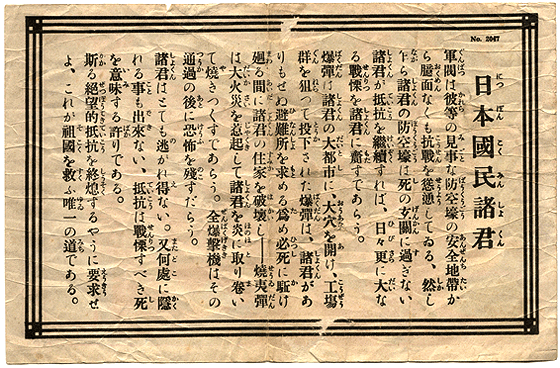 No. 2047
日本國民諸君
軍閥は彼等の見事な防空壕の安全地帶か
ら臆面なくも抗戰を慫慂してゐる、然し
乍ら諸君の防空壕は死の玄關に過ぎない
諸君が抵抗を繼續すれば、日々更に大な
る戰慄を諸君に齎すであらう。
爆彈は諸君の大都市に、大穴を開け、工塲
群を狙つて投下された爆彈は、諸君があ
りもせぬ避難所を求める爲め必死に駈け
廻る間に諸君の住家を破壞し――燒夷彈
は大火災を惹起して諸君を炎で取り卷い
て燒きつくすであらう。全爆擊機はその
通過の後に恐怖を殘すだらう。
諸君はとても逃がれ得ない。又何處に隱
れる事も出來ない、抵抗は戰慄すべき死
を意味する許りである。
斯る絕望的抵抗を終熄するやうに要求せ
よ、これが祖國を救ふ唯一の道である。